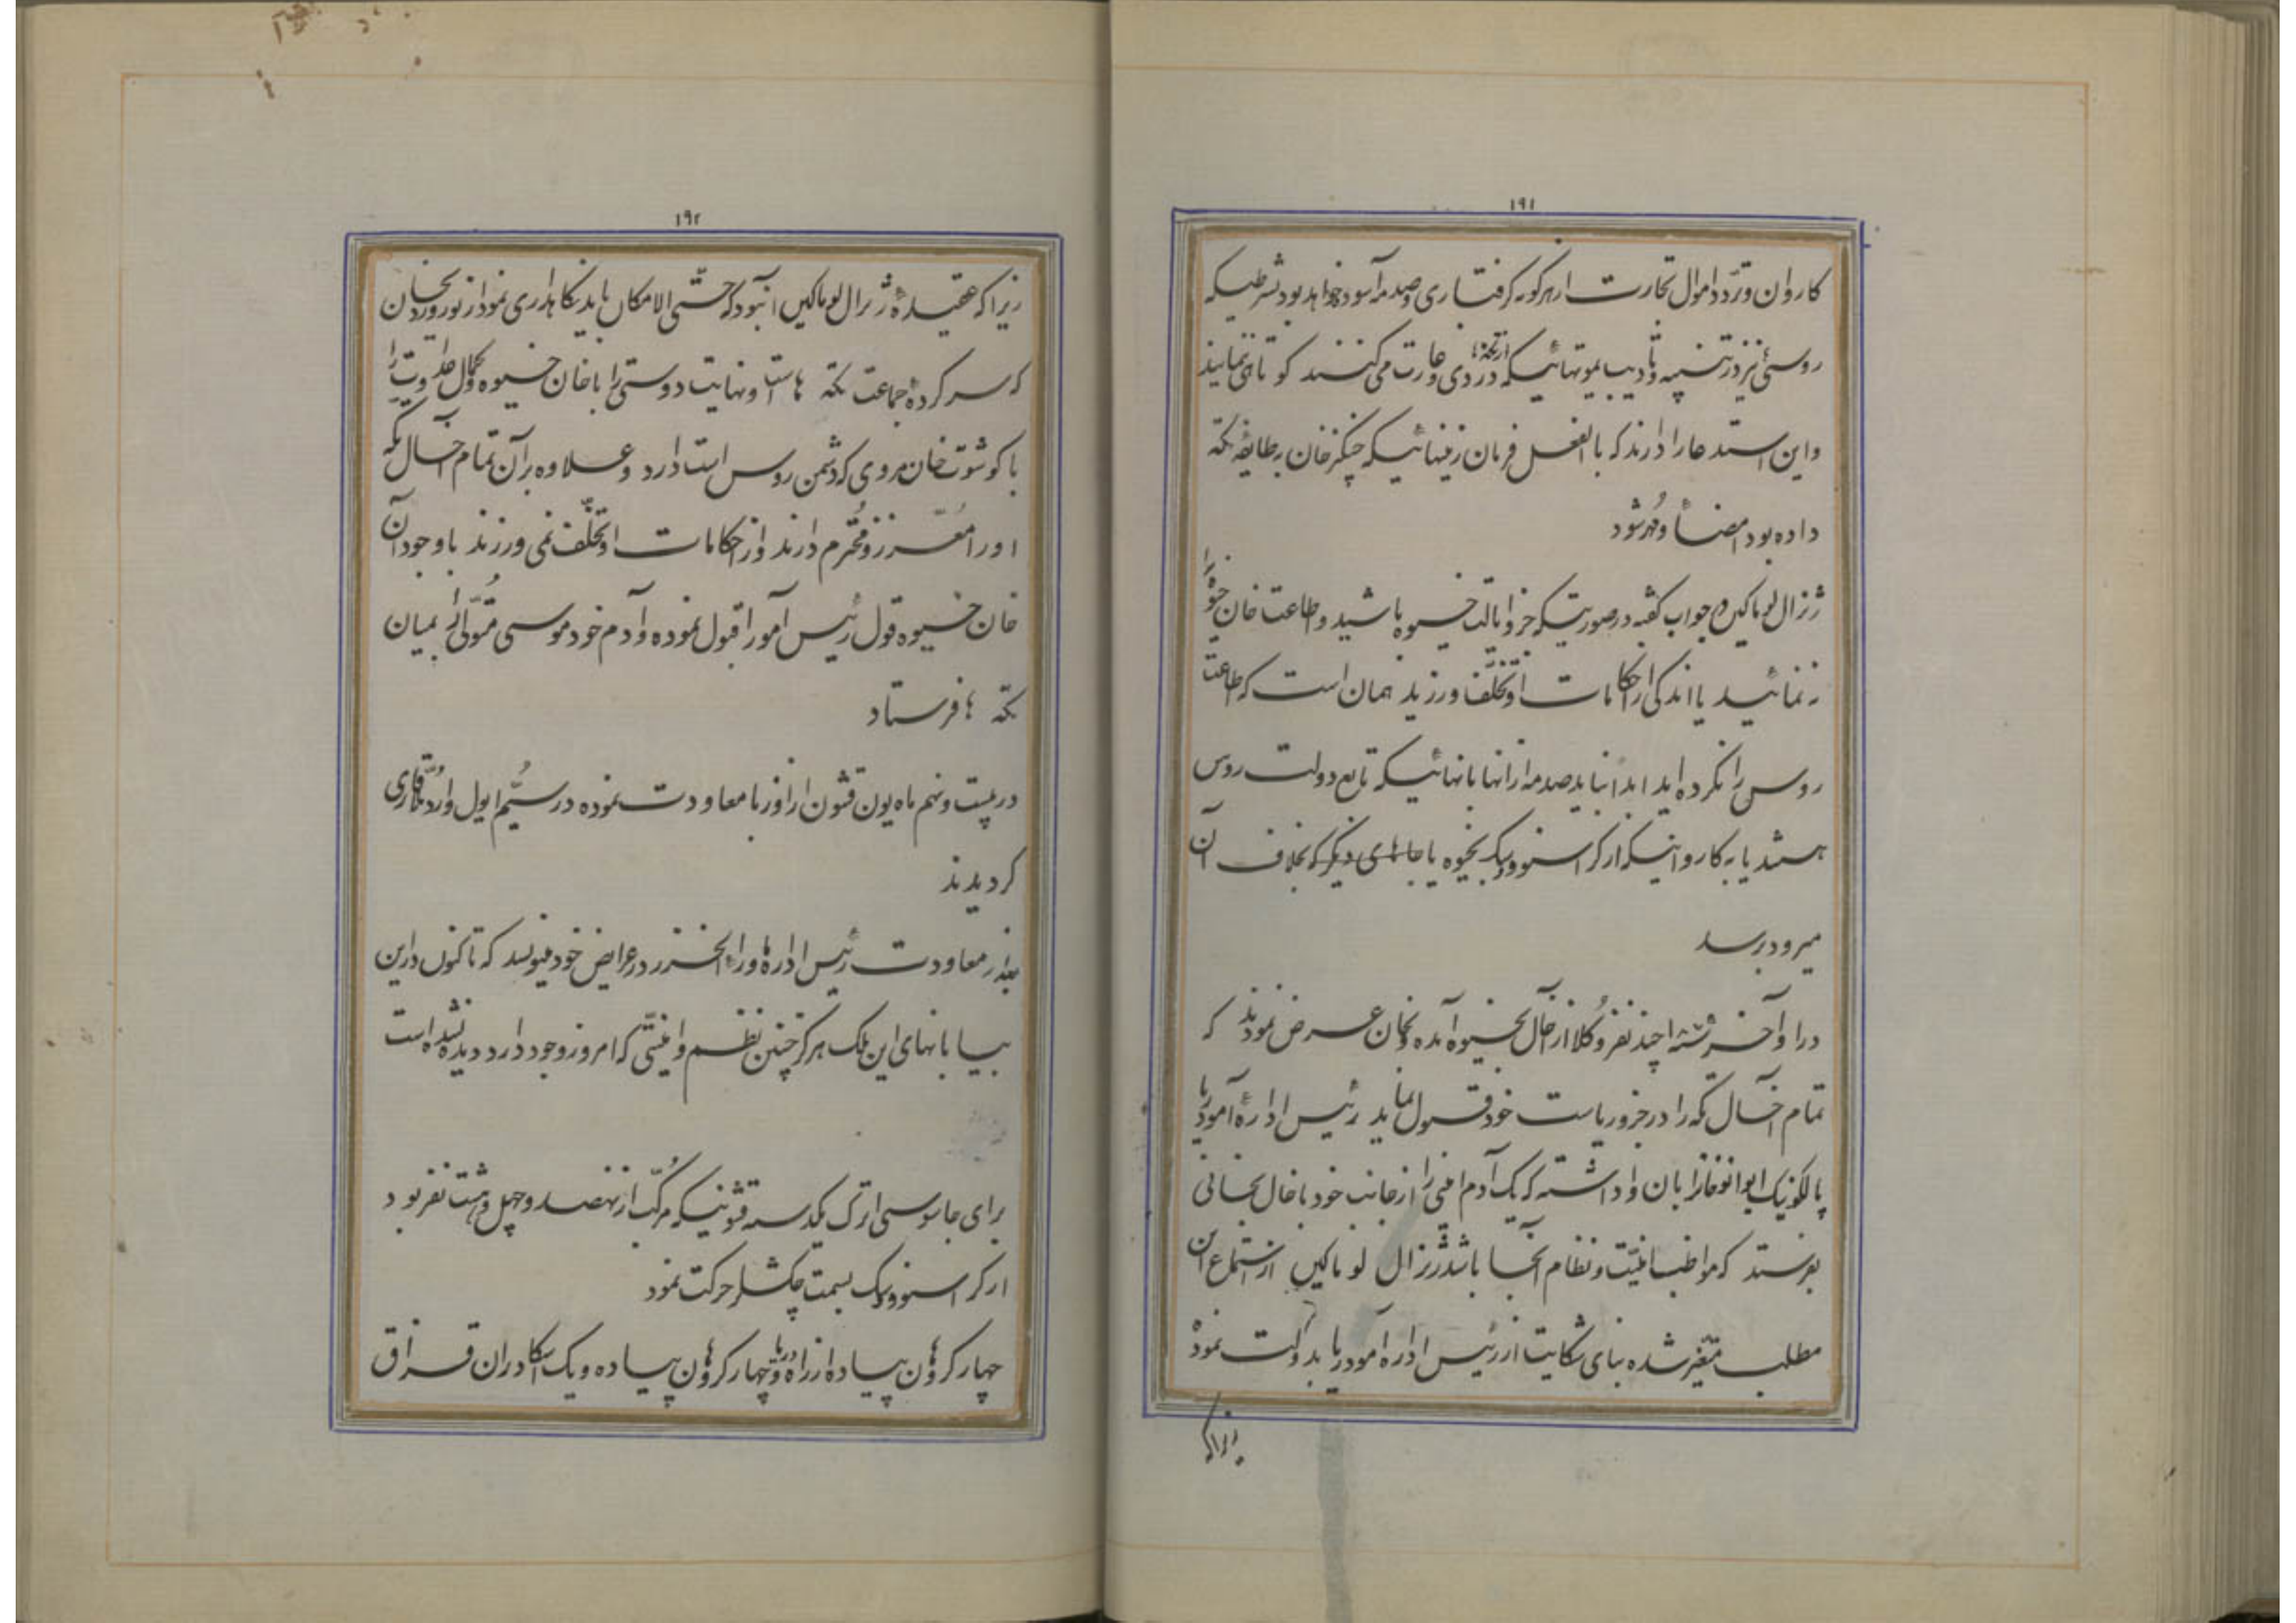 ۱۹۱
کاروان و تردد اموال تجارت از هر گونه گرفتاری و صدمه آسوده خواهد بود بشرطیکه
روسی نیز در تنبیه و تأدیب یموتهائیکه از تکه‌ها دزدی و غارت می‌کنند کوتاهی ننمایند
و این استدعا را دارند که بالفعل فرمان زمینهائیکه چنگیز خان بطایفهٔ تکه
داده بود امضاء و مهر شود
ژنرال لوماکین در جواب گفته در صورتیکه جزو ایالت خیوه باشید و اطاعت خان خیوه را
نمائید یا اندکی از احکامات او تخلف ورزید همان است که اطاعت
روس را نکرده اید ابدا نباید صدمه از آنها بآنهائیکه تابع دولت روس
هستند یا بکاروانیکه از کراسنوودسک بخیوه یا جاهای دیگر که بخلاف آن
میرود برسد
در اواخر چند نفر وکلا از آخال بخیوه آمده بخان عرض نمودند که
تمام آخال تکه را در جزو ریاست خود قبول نماید رئیس ادارهٔ آمودریا
پالکونیک ایوانوف خان را بآن واداشته که یک آدم امنی را از جانب خود بآخال بخانی
بفرستد که مواظب امنیت و نظام آنجا باشد ژنرال لوماکین از استماع این
مطلب متغیر شده بنای شکایت از رئیس ادارهٔ آمودریا بدولت نمود
زیرا که
۱۹۲
زیرا که عقیدهٔ ژنرال لوماکین این بود که حتی الامکان باید نگاهداری نمود از نوروردیخان
که سرکردهٔ جماعت تکه هاست او نهایت دوستی را با خان خیوه و کمال عداوت را
با کوشوت خان مروی که دشمن روس است دارد و علاوه بر آن تمام آخال تکه
او را معزز و محترم دارند و از احکامات او تخلف نمی ورزند با وجود آن
خان خیوه قول رئیس آمو را قبول نموده و آدم خود موسی متولی را بمیان
تکه ها فرستاد
در بیست و نهم ماه یون قشون از اوزبا معاودت نموده در سیم ایول وارد قاری
گردیدند
بعد از معاودت رئیس ادارهٔ ماوراء الخزر در عرایض خود مینویسد که تاکنون در این
بیابانهای این ملک هرگز چنین نظم و امنیتی که امروز وجود دارد دیده نشده است
برای جاسوسی اترک یکدسته قشونیکه مرکب از نهصد و چهل و هشت نفر بود
از کراسنوودسک بسمت چکشلر حرکت نمود
چهار کرهٔ‌ون پیاده از راه دریا و چهار کرهٔ‌ون پیاده و یک اسکادران قزاق